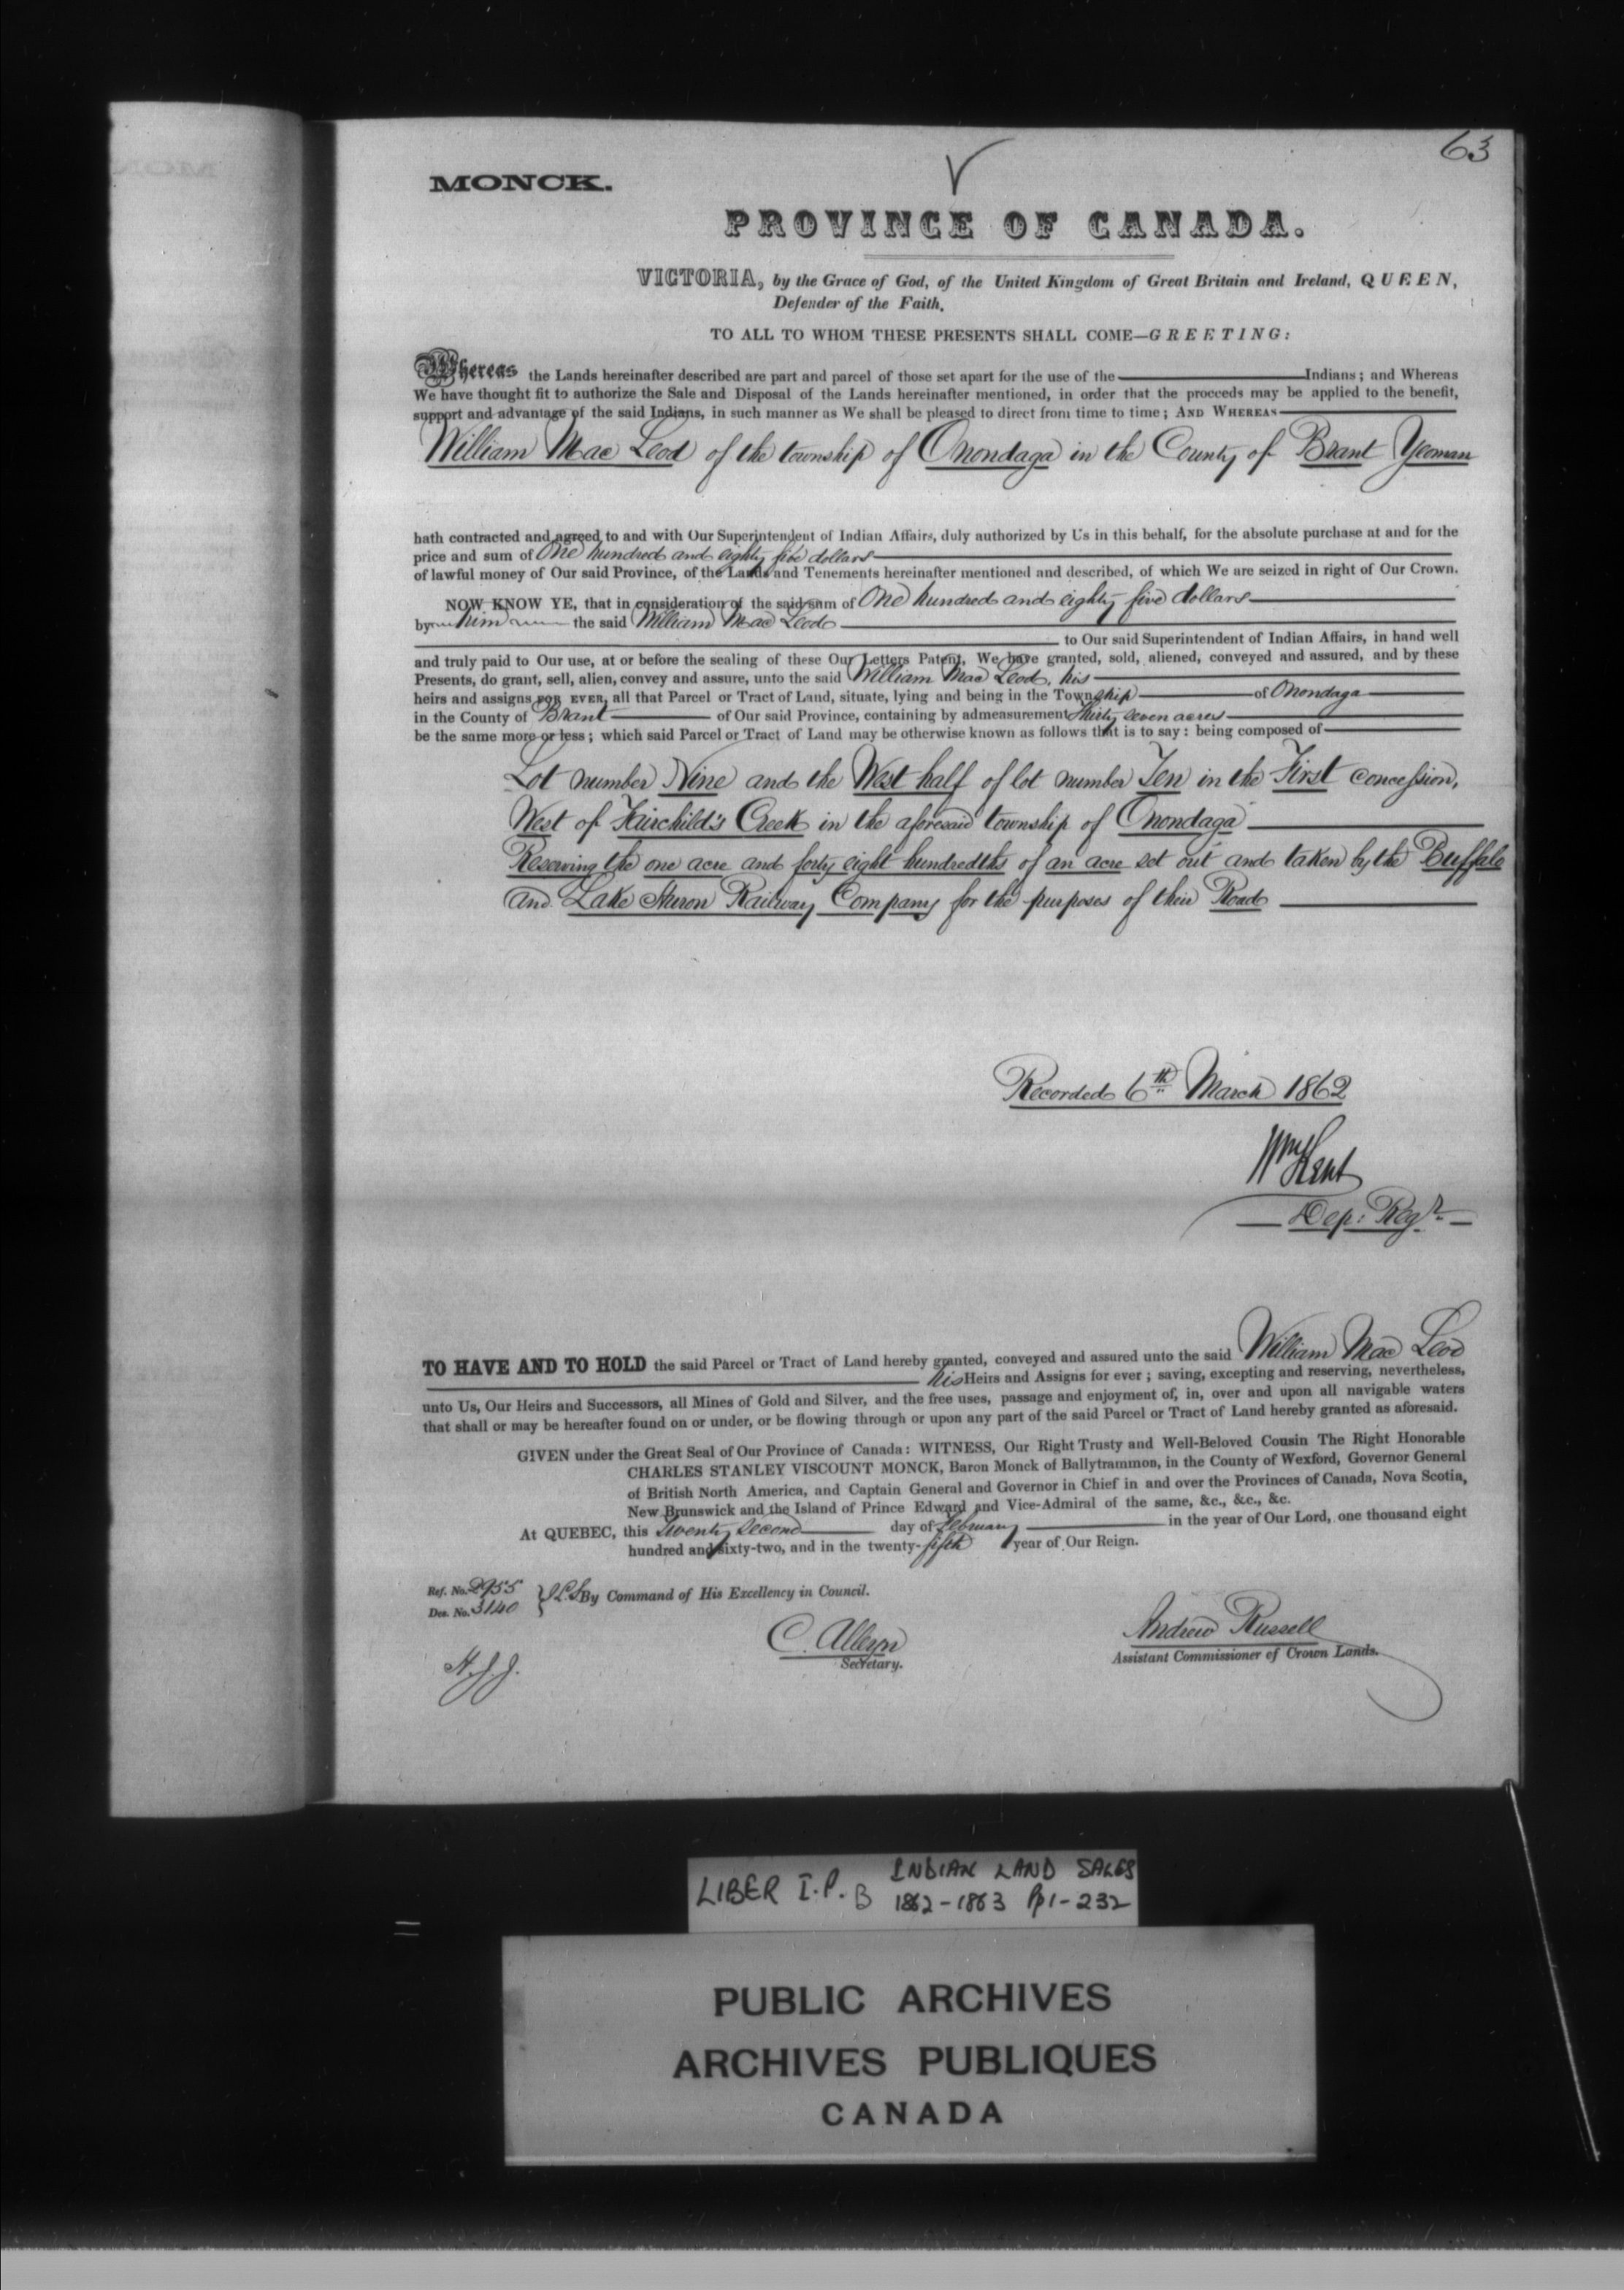 63
MONCK.
PROVINCE OF CANADA.
VICTORIA, by the Grace of God, of the United Kingdom of Great Britain and Ireland, QUEEN,
Defender of the Faith,
TO ALL TO WHOM THESE PRESENTS SHALL COME—GREETING:
Whereas the Lands hereinafter described are part and parcel of those set apart for the use of the Indians; and Whereas
We have thought fit to authorize the Sale and Disposal of the Lands hereinafter mentioned, in order that the proceeds may be applied to the benefit,
support and advantage of the said Indians, in such manner as We shall be pleased to direct from time to time; AND WHEREAS
William Mac Leod of the township of Onondaga in the County of Brant Yeoman
hath contracted and agreed to and with Our Superintendent of Indian Affairs, duly authorized by Us in this behalf, for the absolute purchase at and for the
price and sum of One hundred and eighty five dollars
of lawful money of Our said Province, of the Lands and Tenements hereinafter mentioned and described, of which We are seized in right of Our Crown.
NOW KNOW YE, that in consideration of the said sum of One hundred and eighty five dollars
by him the said William Mac Leod
to Our said Superintendent of Indian Affairs, in hand well
and truly paid to Our use, at or before the sealing of these Our Letters Patent, We have granted, sold, aliened, conveyed and assured, and by these
Presents, do grant, sell, alien, convey and assure, unto the said William Mac Leod, his
heirs and assigns FOR EVER, all that Parcel or Tract of Land, situate, lying and being in the Township of Onondaga
in the County of Brant of Our said Province, containing by admeasurement Thirty seven acres
be the same more or less; which said Parcel or Tract of Land may be otherwise known as follows that is to say: being composed of
Lot number Nine and the West half of lot number Ten in the First concession,
West of Fairchild's Creek in the aforesaid township of Onondaga
Reserving the one acre and forty eight hundredths of an acre set out and taken by the Buffalo
and Lake Huron Railway Company for the purposes of their Road
Recorded 6th March 1862
Wm Kent
Dep: Regr
TO HAVE AND TO HOLD the said Parcel or Tract of Land hereby granted, conveyed and assured unto the said William Mac Leod
his Heirs and Assigns for ever; saving, excepting and reserving, nevertheless,
unto Us, Our Heirs and Successors, all Mines of Gold and Silver, and the free uses, passage and enjoyment of, in, over and upon all navigable waters
that shall or may be hereafter found on or under, or be flowing through or upon any part of the said Parcel or Tract of Land hereby granted as aforesaid.
GIVEN under the Great Seal of Our Province of Canada: WITNESS, Our Right Trusty and Well-Beloved Cousin The Right Honorable
CHARLES STANLEY VISCOUNT MONCK, Baron Monck of Ballytrammon, in the County of Wexford, Governor General
of British North America, and Captain General and Governor in Chief in and over the Provinces of Canada, Nova Scotia,
New Brunswick and the Island of Prince Edward and Vice-Admiral of the same, &c., &c., &c.
At QUEBEC, this twenty second day of February in the year of Our Lord, one thousand eight
hundred and sixty-two, and in the twenty-fifth year of Our Reign.
Ref. No. 2955
Des. No. 3140
By Command of His Excellency in Council.
C. Alleyn
Secretary.
Andrew Russell
Assistant Commissioner of Crown Lands.
H.J.J.
LIBER I.P. B INDIAN LAND SALES
1862-1863 Pp 1-232
PUBLIC ARCHIVES
ARCHIVES PUBLIQUES
CANADA